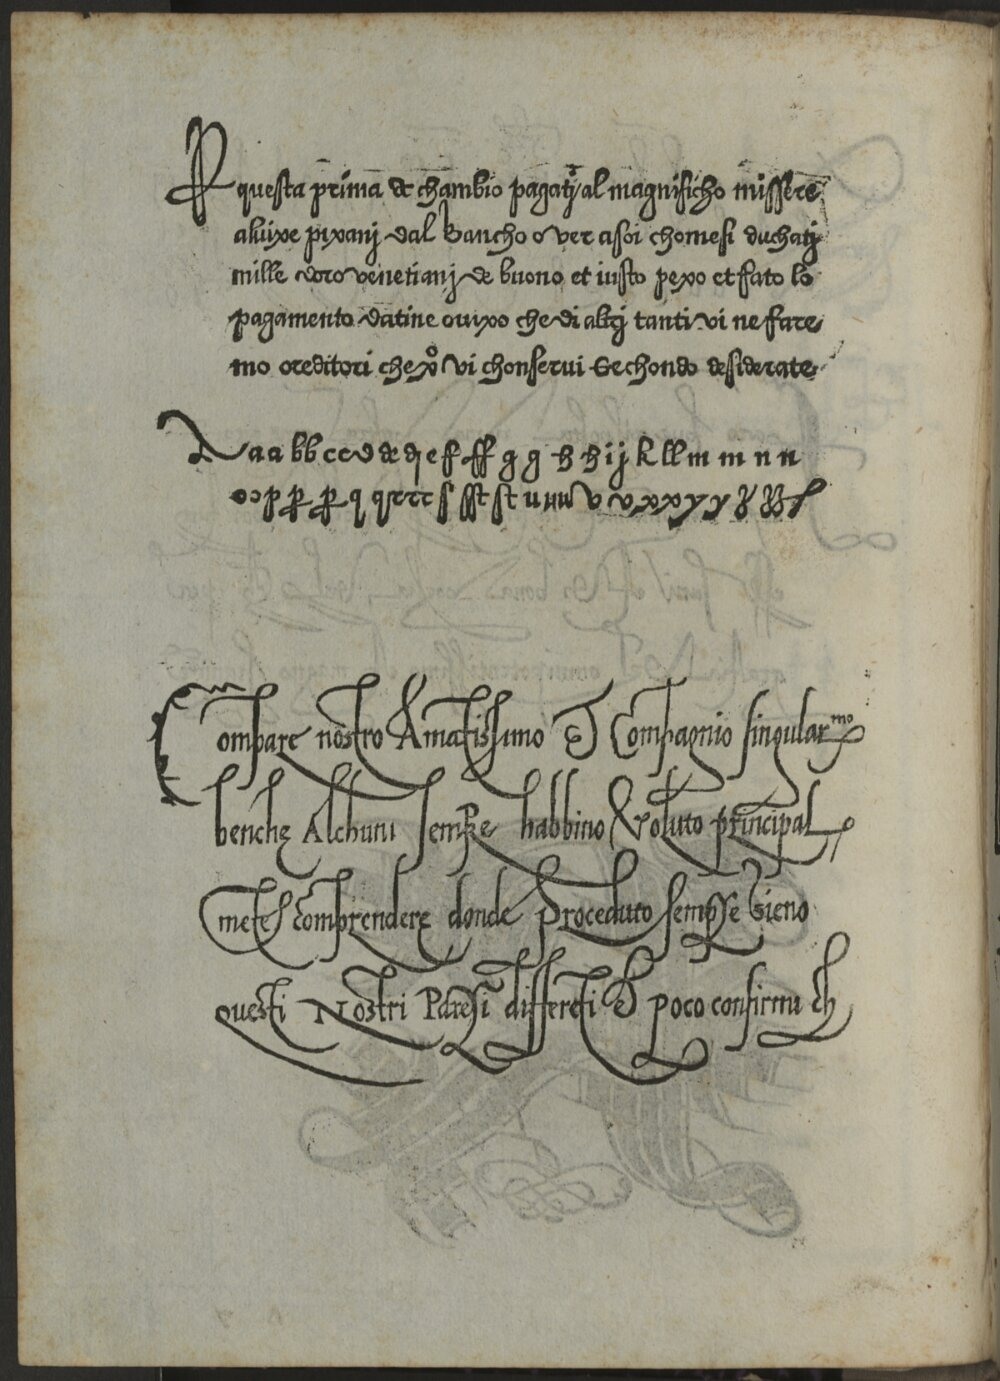 P questa prima de chambio pagatj al magnificho missere
aluixe pixanj dal bancho o ver asoi chomesi duchatj
mille doro venetianj de buono et iusto pexo et fato lo
pagamento datine auixo che di altrj tanti vi ne fare
mo creditori che xo vi chonserui Sechondo desiderate
A a a b b c c d d e f ff g g h h i j k l l m m n n
o o p p p q q r r r s st st u u u v v x x y y
Compare nostro Amatissimo & Compagnio singularmo
benche Alchuni sempre habbino Voluto principal
mete comprendere donde proceduto sempre sieno
questi Nostri Paresi differeti & poco confirmi ch